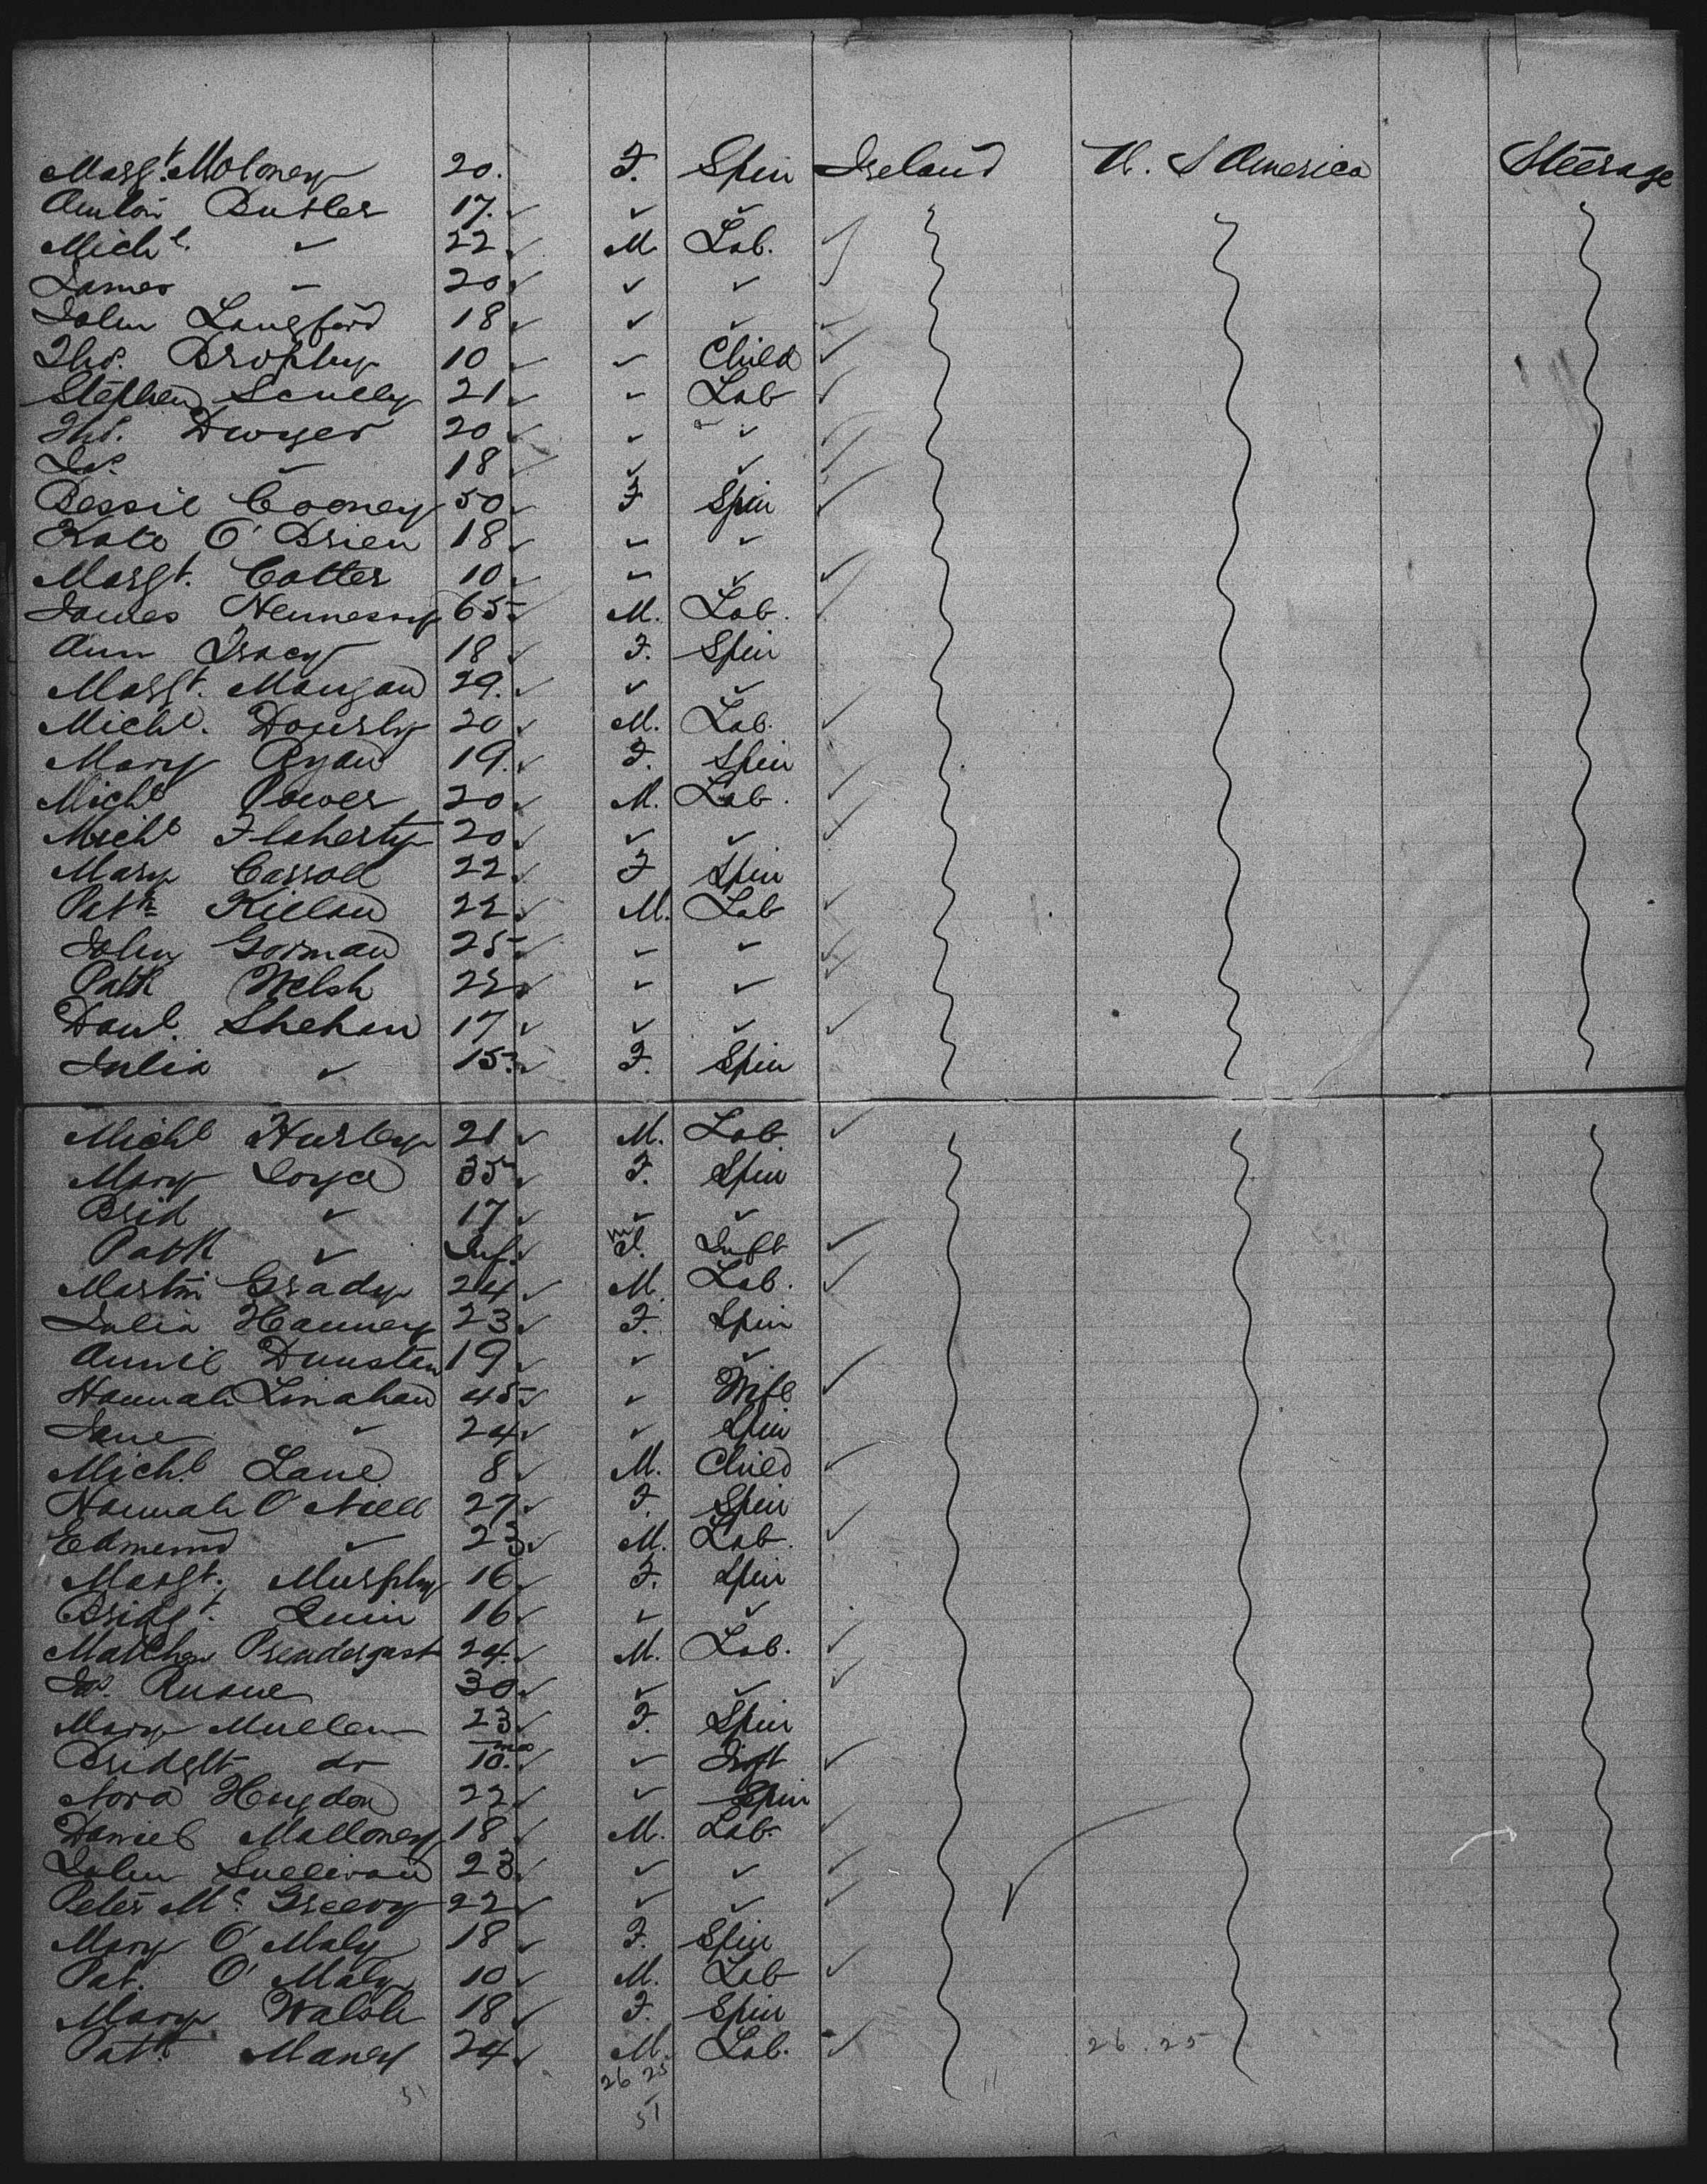 Margt. Moloney 20. F. Spin Ireland U. S America Steerage
Butler 17. ✓ ✓ ✓
Michl. ✓ 22 ✓ M Lab. ✓
James ✓ 20 ✓ ✓ ✓ ✓
John Langford 18 ✓ ✓ ✓ ✓
Thos. Brophy 10 ✓ ✓ Child ✓
Stephen Scully 21 ✓ ✓ Lab ✓
Thos. Dwyer 20 ✓ ✓ ✓ ✓
Jas. ✓ 18 ✓ ✓ ✓ ✓
Bessie Cooney 50 ✓ F Spin ✓
Kate O'Brien 18 ✓ ✓ ✓
Margt. Cotter 10 ✓ ✓ ✓ ✓
James Hennessy 65 ✓ M. Lab. ✓
Ann Tracy 18 ✓ F. Spin
Margt. Mangan 29. ✓ ✓ ✓
Michl. 20 ✓ M. Lab. ✓
Mary Ryan 19. ✓ F. Spin
Michl Power 20 ✓ M. Lab. ✓
Michl Flaherty 20 ✓ ✓ ✓ ✓
Mary Carroll 22 ✓ F Spin
Patk Kielan 22 ✓ M. Lab ✓
John Gorman 25 ✓ ✓ ✓ ✓
Patk Welsh 22 ✓ ✓ ✓ ✓
Danl. Shehan 17 ✓ ✓ ✓ ✓
Julia ✓ 15 ✓ F. Spin
Michl Hurley 21 ✓ M. Lab ✓
Mary Joyce 35 ✓ F. Spin
Brid ✓ 17 ✓ ✓ ✓
Patk ✓ Inf. ✓ m Inft ✓
Martin Grady 24 ✓ M. Lab. ✓
Julia Hanney 23 ✓ F. Spin
Annie Dunstan 19 ✓ ✓ ✓
Hannah Linahan 45 ✓ ✓ Wife ✓
Jane ✓ 24 ✓ ✓ Spin
Michl Lane 8 ✓ M. Child ✓
Hannah O'Niell 27 ✓ F. Spin
Edmund ✓ 23 ✓ M. Lab. ✓
Margt. Murphy 16 ✓ F. Spin
Bridgt. Quin 16 ✓ ✓ ✓
Matthew Prendergast 24 ✓ M. Lab. ✓
Jas. Ruane 30 ✓ ✓ ✓ ✓
Mary Mullen 23 ✓ F. Spin
Bridgtt do 10 mos ✓ ✓ Inft ✓
Nora 22 ✓ ✓ Spin
Daniel Malloney 18 ✓ M. Lab. ✓
John Sullivan 23 ✓ ✓ ✓ ✓
Peter Mc Greevy 22 ✓ ✓ ✓ ✓
Mary O'Maly 18 ✓ F. Spin
Pat. O'Maly 10 ✓ M. Lab ✓
Mary Walsh 18 ✓ F. Spin
Patk. Maney 24 ✓ M. Lab. ✓ 26. 25
26 25
51 51